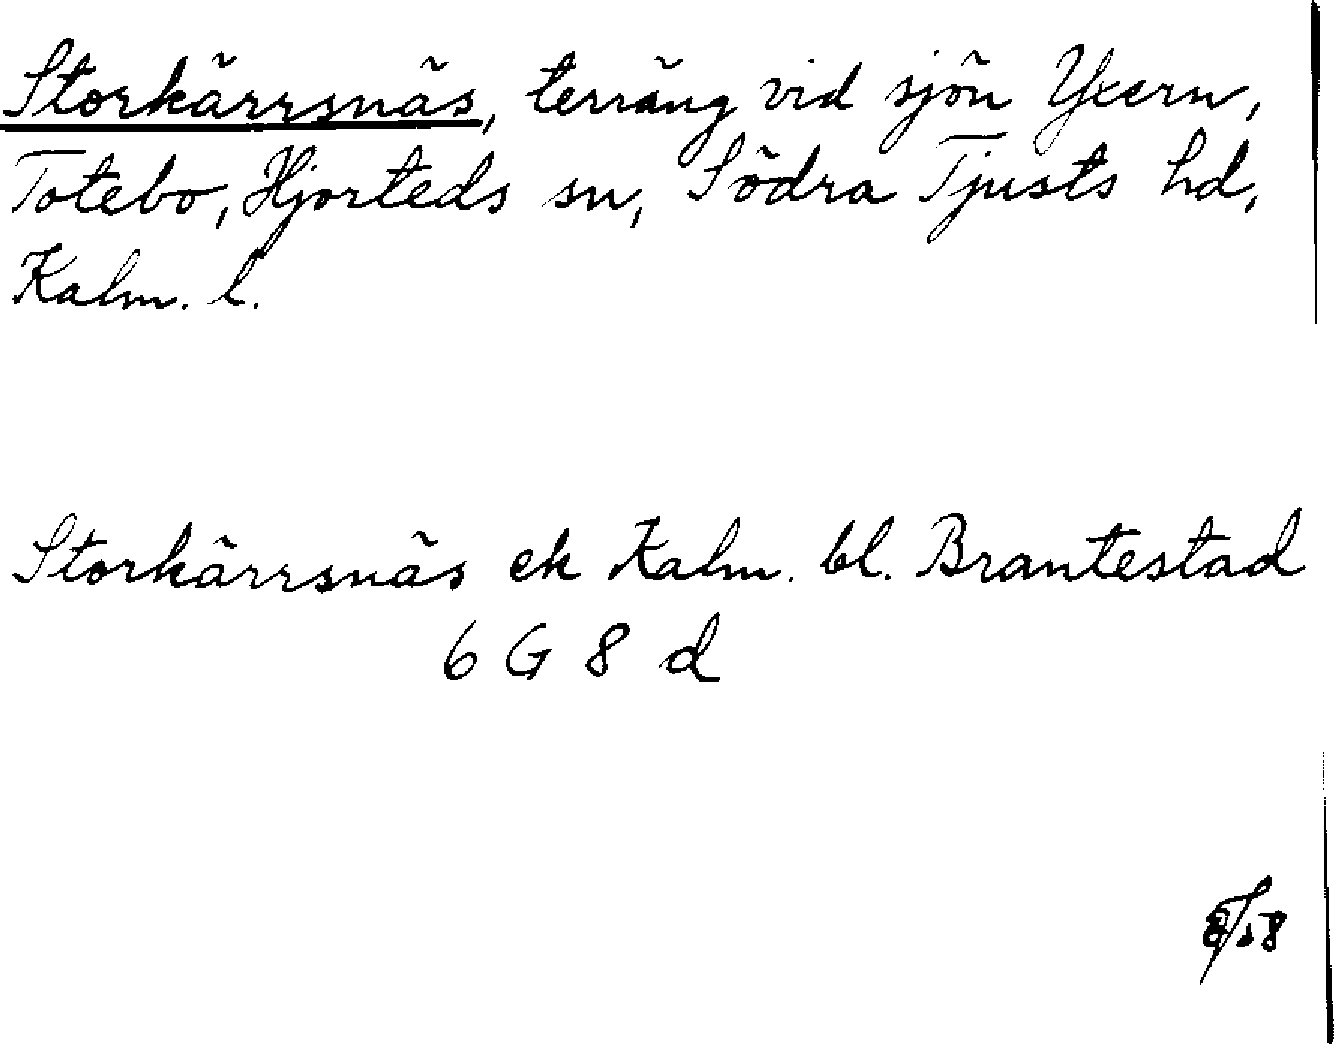 Storkärrsnäs, terräng vid sjön Yxern,
Totebo, Hjorteds sn, Södra Tjusts hd,
Kalm. l.
Storkärrsnäs ek Kalm. bl. Brantestad
6 G 8 d